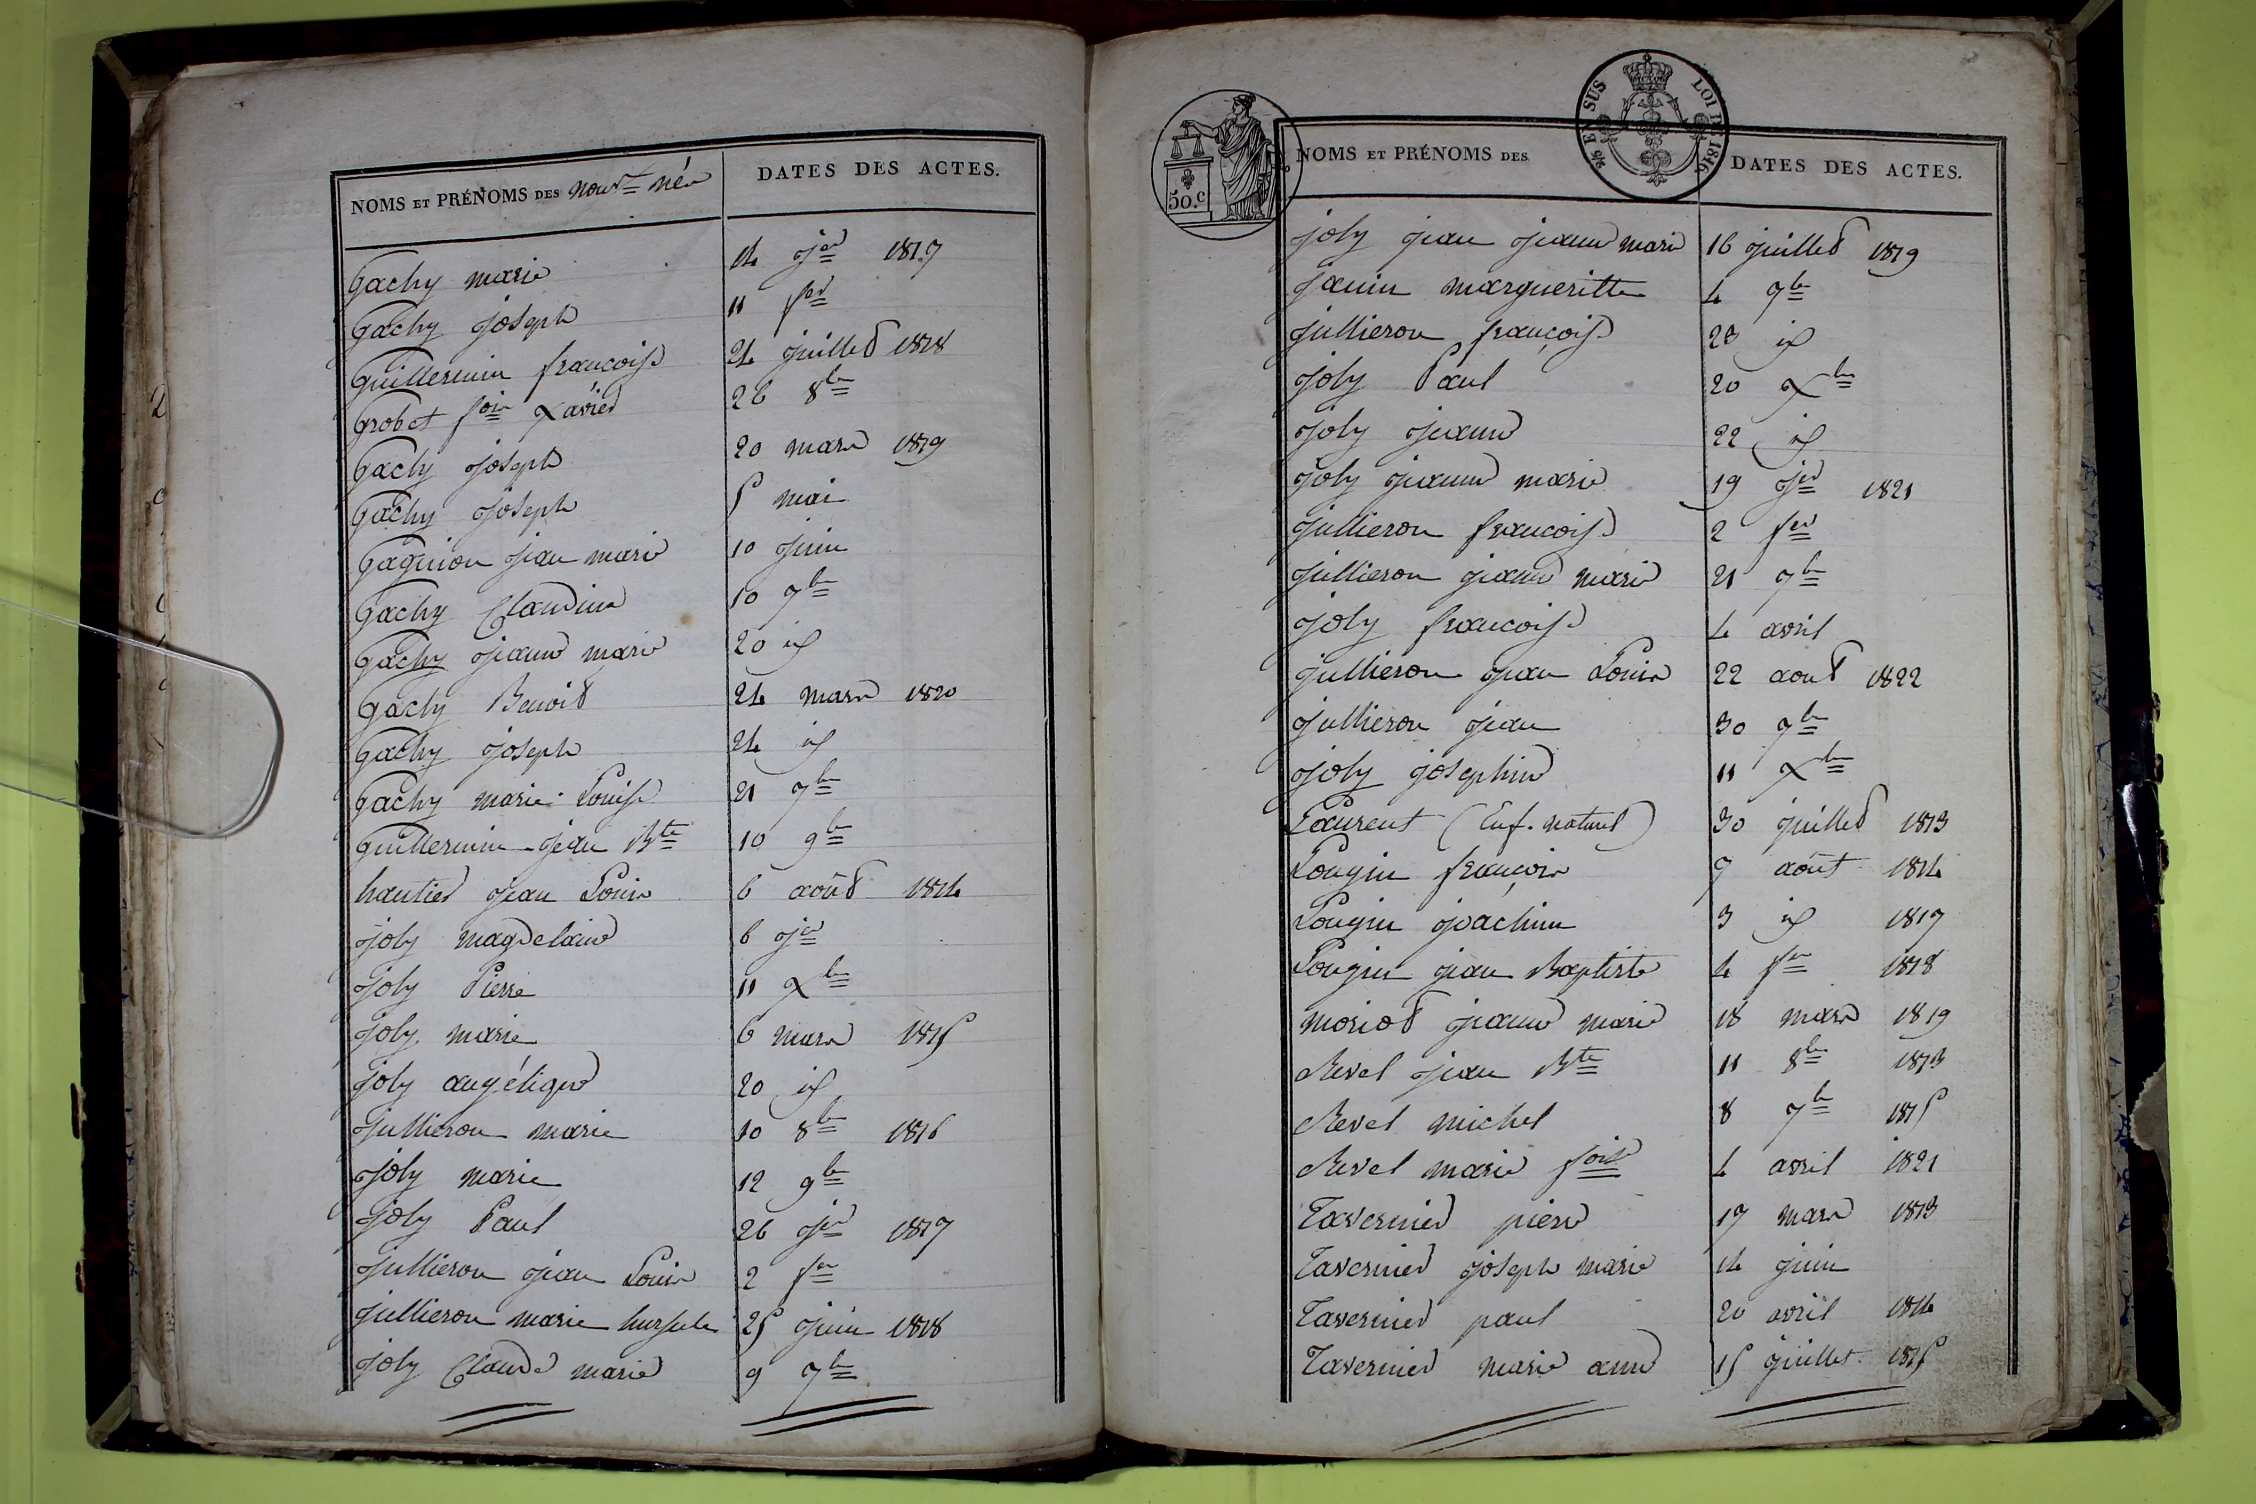 NOMS ET PRÉNOMS DES nouv. né DATES DES ACTES.
Gachy marie 14 jer 1817
Gachy joseph 11 fer
Guillermin françoise 24 juillet 1818
Grobet fois Xavier 26 8bre
Gachy joseph 20 mars 1819
Gachy joseph 5 mai
Gagnion jean marie 10 juin
Gachy Claudine 10 7bre
Gachy jeanne marie 20 id
Gachy Benoit 24 mars 1820
Gachy joseph 24 id
Gachy marie Louise 21 7bre
Guillermin jean Bte 10 9bre
hautier jean Louis 6 août 1814
joly magdelaine 6 jer
joly Pierre 11 Xbre
joly marie 6 mars 1815
joly angélique 20 id
jullieron marie 10 8bre 1816
joly marie 12 9bre
joly Paul 26 jer 1817
jullieron jean Louis 2 fer
jullieron marie hursule 25 juin 1818
joly Claude marie 9 7bre
50.c
EN SUS LOI DE 1816
NOMS ET PRÉNOMS DES DATES DES ACTES.
joly jean jeanne marie 16 juillet 1819
janin margueritte 4 7bre
jullieron françoise 23 id
joly Paul 20 Xbre
joly jeanne 22 id
joly jeanne marie 19 jer 1821
jullieron françoise 2 fer
jullieron jeanne marie 21 7bre
joly françoise 4 avril
jullieron jean Louis 22 aout 1822
jullieron jean 30 7bre
joly josephine 11 Xbre
Laurent (Enf. naturel) 30 juillet 1813
Longin françois 7 août 1814
Longin joachim 3 id 1817
Longin jean Baptiste 4 fer 1818
moriot jeanne marie 18 mars 1819
Revel jean Bte 11 8bre 1813
Revel michel 8 7bre 1815
Revel marie foise 4 avril 1821
Tavernier pierre 17 mars 1813
Tavernier joseph marie 14 juin
Tavernier paul 20 avril 1814
Tavernier marie anne 15 juillet 1815